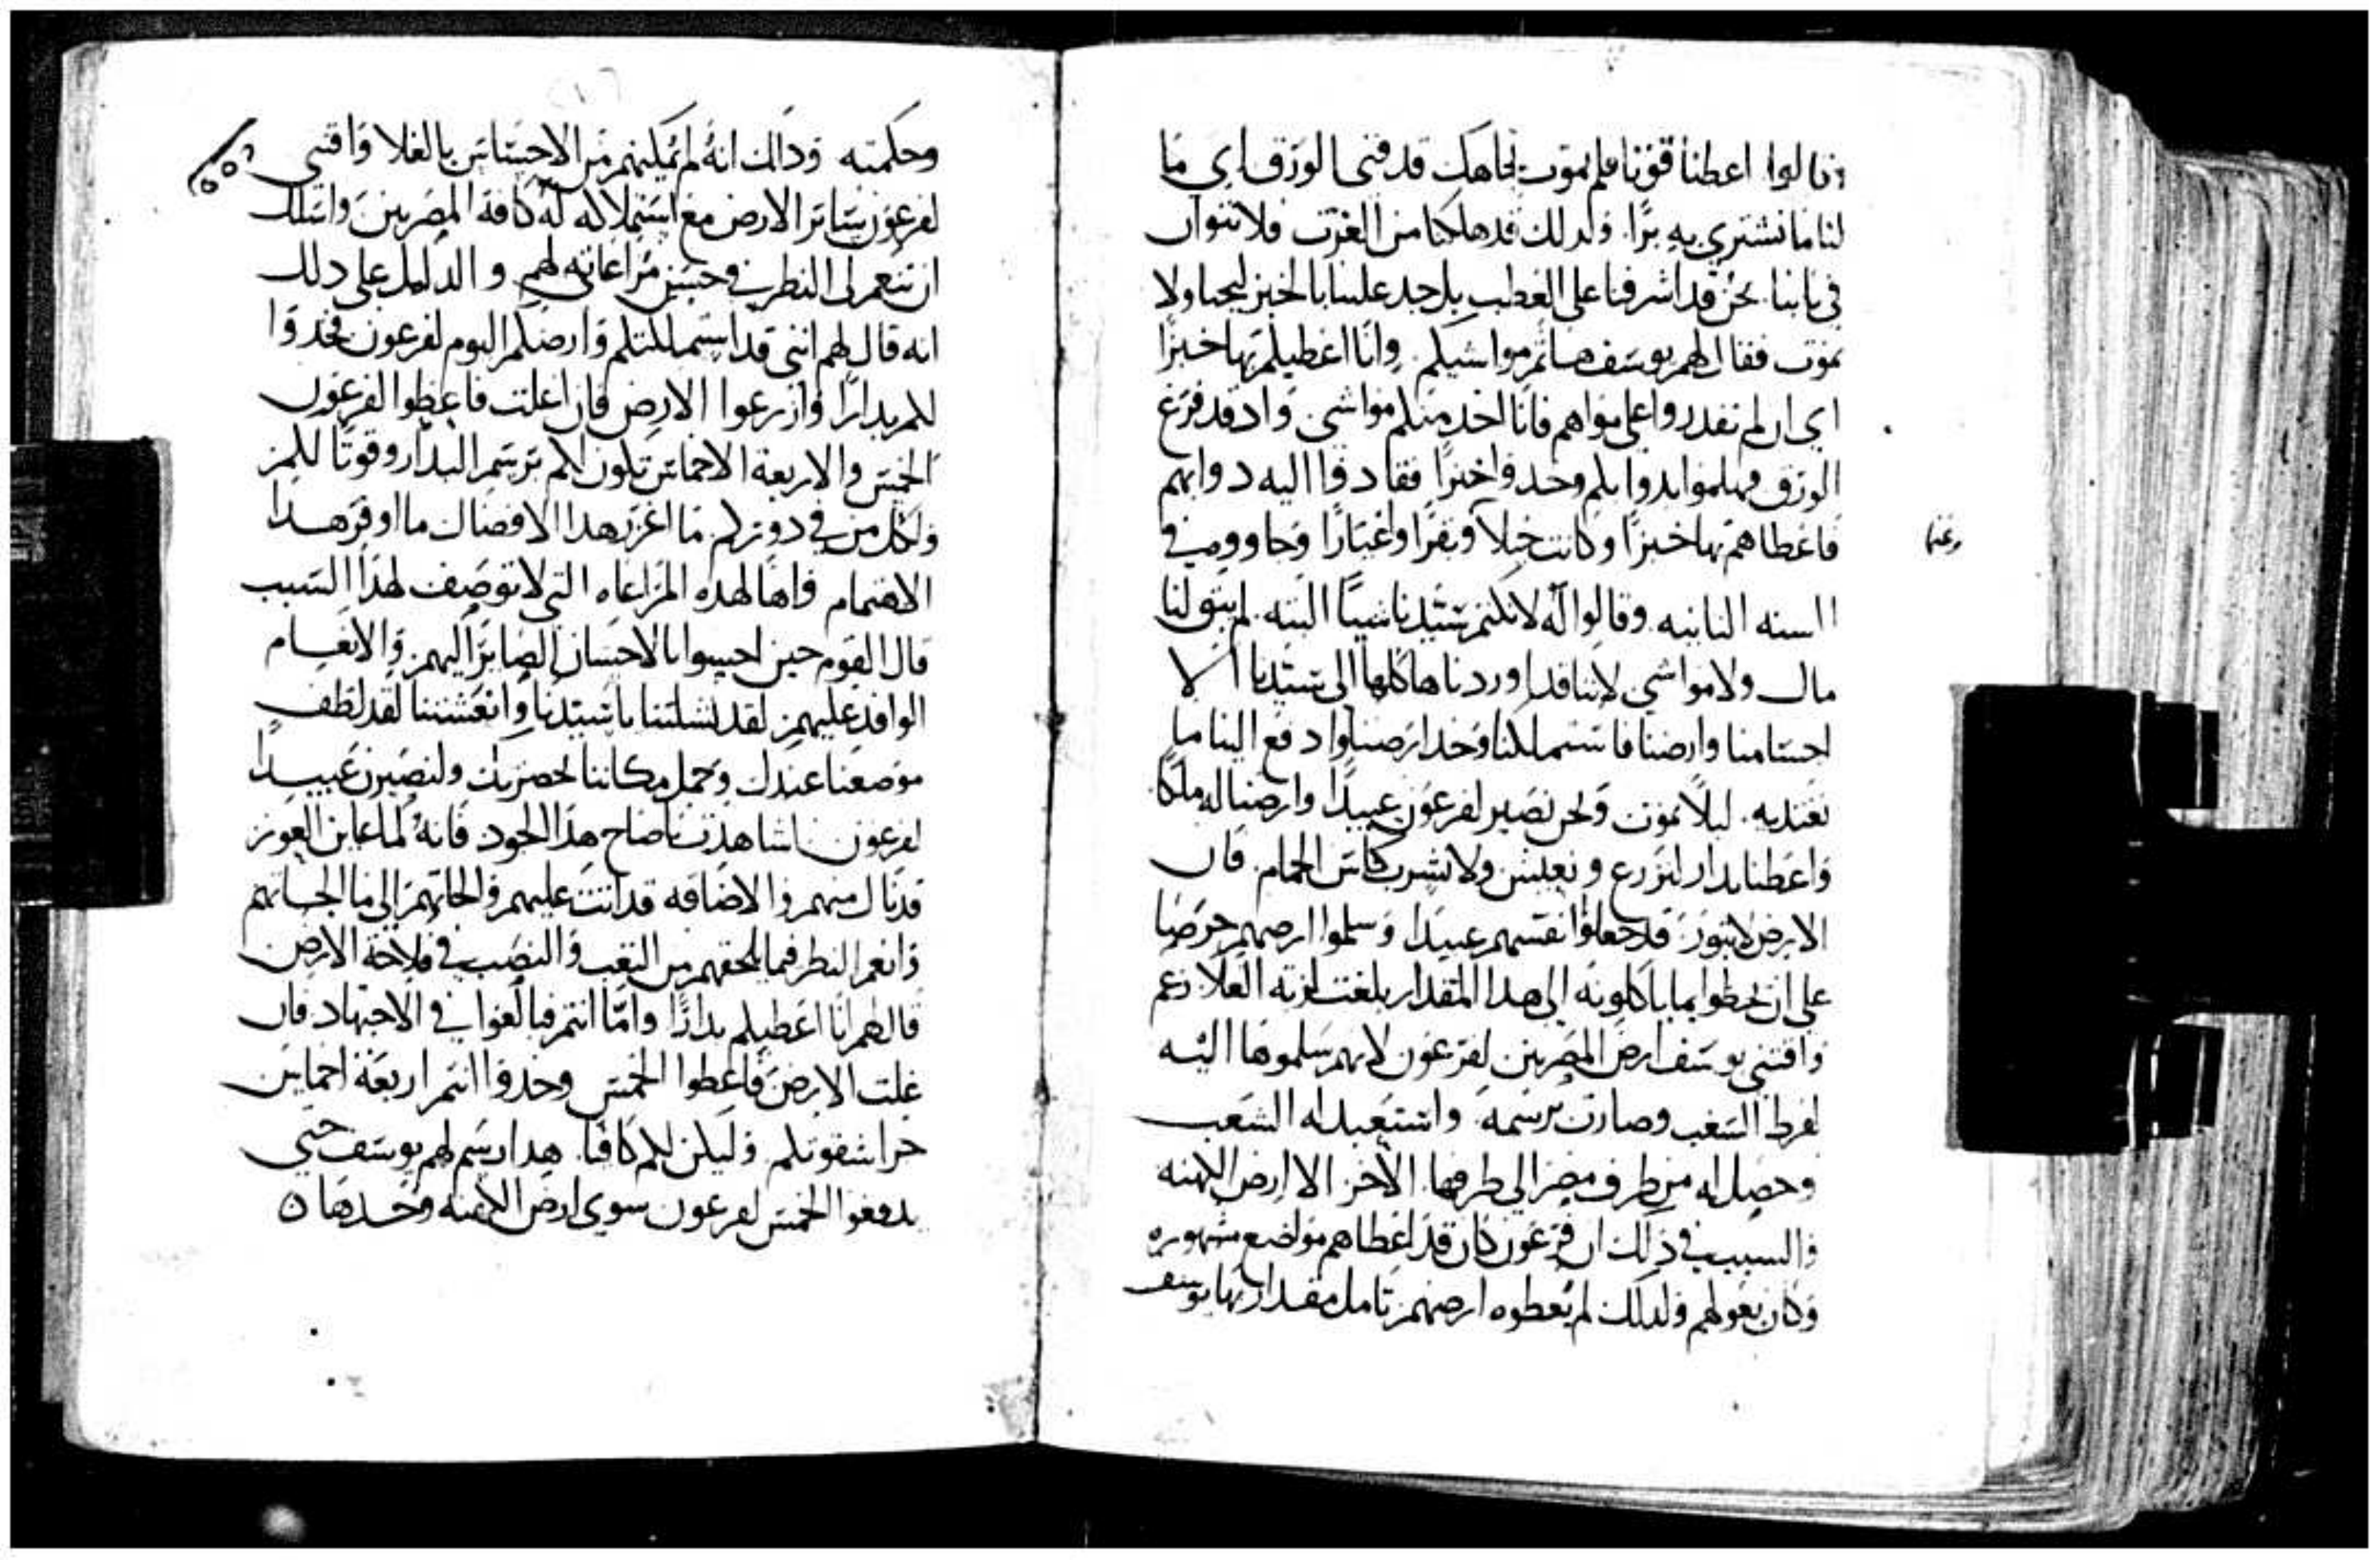 وقالوا اعطنا قوتنا فلم نموت تجاهك قد فني الورق اي ما
لنا ما نشتري به برا. ولدلك قد هلكنا من الغرت فلا تتوان
في بابنا نحن قد اشرفنا على العطب بل جد علينا بالخبز لنحيا ولا
نموت فقال لهم يوسف هاتم مواشيكم. وانا اعطيكم بها خبزا
اي ان لم تقدروا على فانا اخد منكم مواشي واد قد فرغ
الورق فهلموا بدوابكم وخدوا خبزا فقادوا اليه دوابهم
فاعطاهم بها خبزا وكانت خيلا وبقرا واغيارا وجاووه في
وغنما
السنه التانيه. وقالوا له لا نكتم سيدنا شيا البته. لم يبق لنا
مال ولا مواشي لاننا قد اوردناها كلها الى سيدنا الا
اجسامنا وارضنا فاستملكنا وخد ارضنا وادفع الينا ما
نغتديه. ليلا نموت ونحن نصير لفرعون عبيدا وارضنا له ملكا
واعطنا بدار لنزرع ونعيش ولا نشرب كاس الحمام. فان
الارض لا تبور. قد جعلوا انفسهم عبيدا وسلموا ارضهم حرصا
على ان يحظوا بما ياكلونه الى هدا المقدار بلغت لزبه الغلا زعم
واقتنى يوسف ارض المصريين لفرعون لانهم سلموها اليه
لفرط السغب وصارت برسمه واستعبد له الشعب
وحصل له من طرف مصر الى طرفها. الاخر الا ارض الكهنه
والسبب في دلك ان فرعون كان قد اعطاهم مواضع مشهوره
وكان يعولهم ولدلك لم يعطوه ارضهم تامل مقدار بها يوسف
وحكمته ودالك انه لم يمكنهم من الاحساس بالغلا واقتنى
لفرعون ساير الارض مع استملاكه له كافة المصريين واسلك
ان تنعم لي النظر في حسن مراعاته لهم والدليل على دلك
انه قال لهم انني قد استملكتكم وارضكم اليوم لفرعون فخدوا
لكم بدارا وازرعوا الارض فان اغلت فاعطوا لفرعون
الخمس والاربعة الاخماس تكون لكم برسم البدار وقوتا لكم
ولكل من في دوركم. ما اغزر هدا الافضال ما اوفر هدا
الاهتمام فاها لهده المراعاه التي لا توصف لهدا السبب
قال القوم حين احسوا بالاحسان الصاير اليهم والانعام
الوافد عليهم لقد نشلتنا يا سيدنا وانعشتنا لقد لطف
موضعنا عندك وجمل مكاننا بحضرتك ولنصيرن عبيدا
لفرعون. اشاهدت يا صاح هدا الجود فانه لما عاين العوز
قد نال منهم والاضاقه قد اتت عليهم والجاتهم الى ما الجاتهم
وانعم النظر فيما يلحقهم من التعب والنصب في فلاحة الارض
قال لهم انا اعطيكم بدارا واما انتم فبالغوا في الاجتهاد. فان
غلت الارض فاعطوا الخمس وخدوا انتم اربعة اخماس
حراسقوتكم وليكن لكم كافيا. هدا رسم لهم يوسف حتى
يدفعوا الخمس لفرعون سوى ارض الكهنه وحدها ه